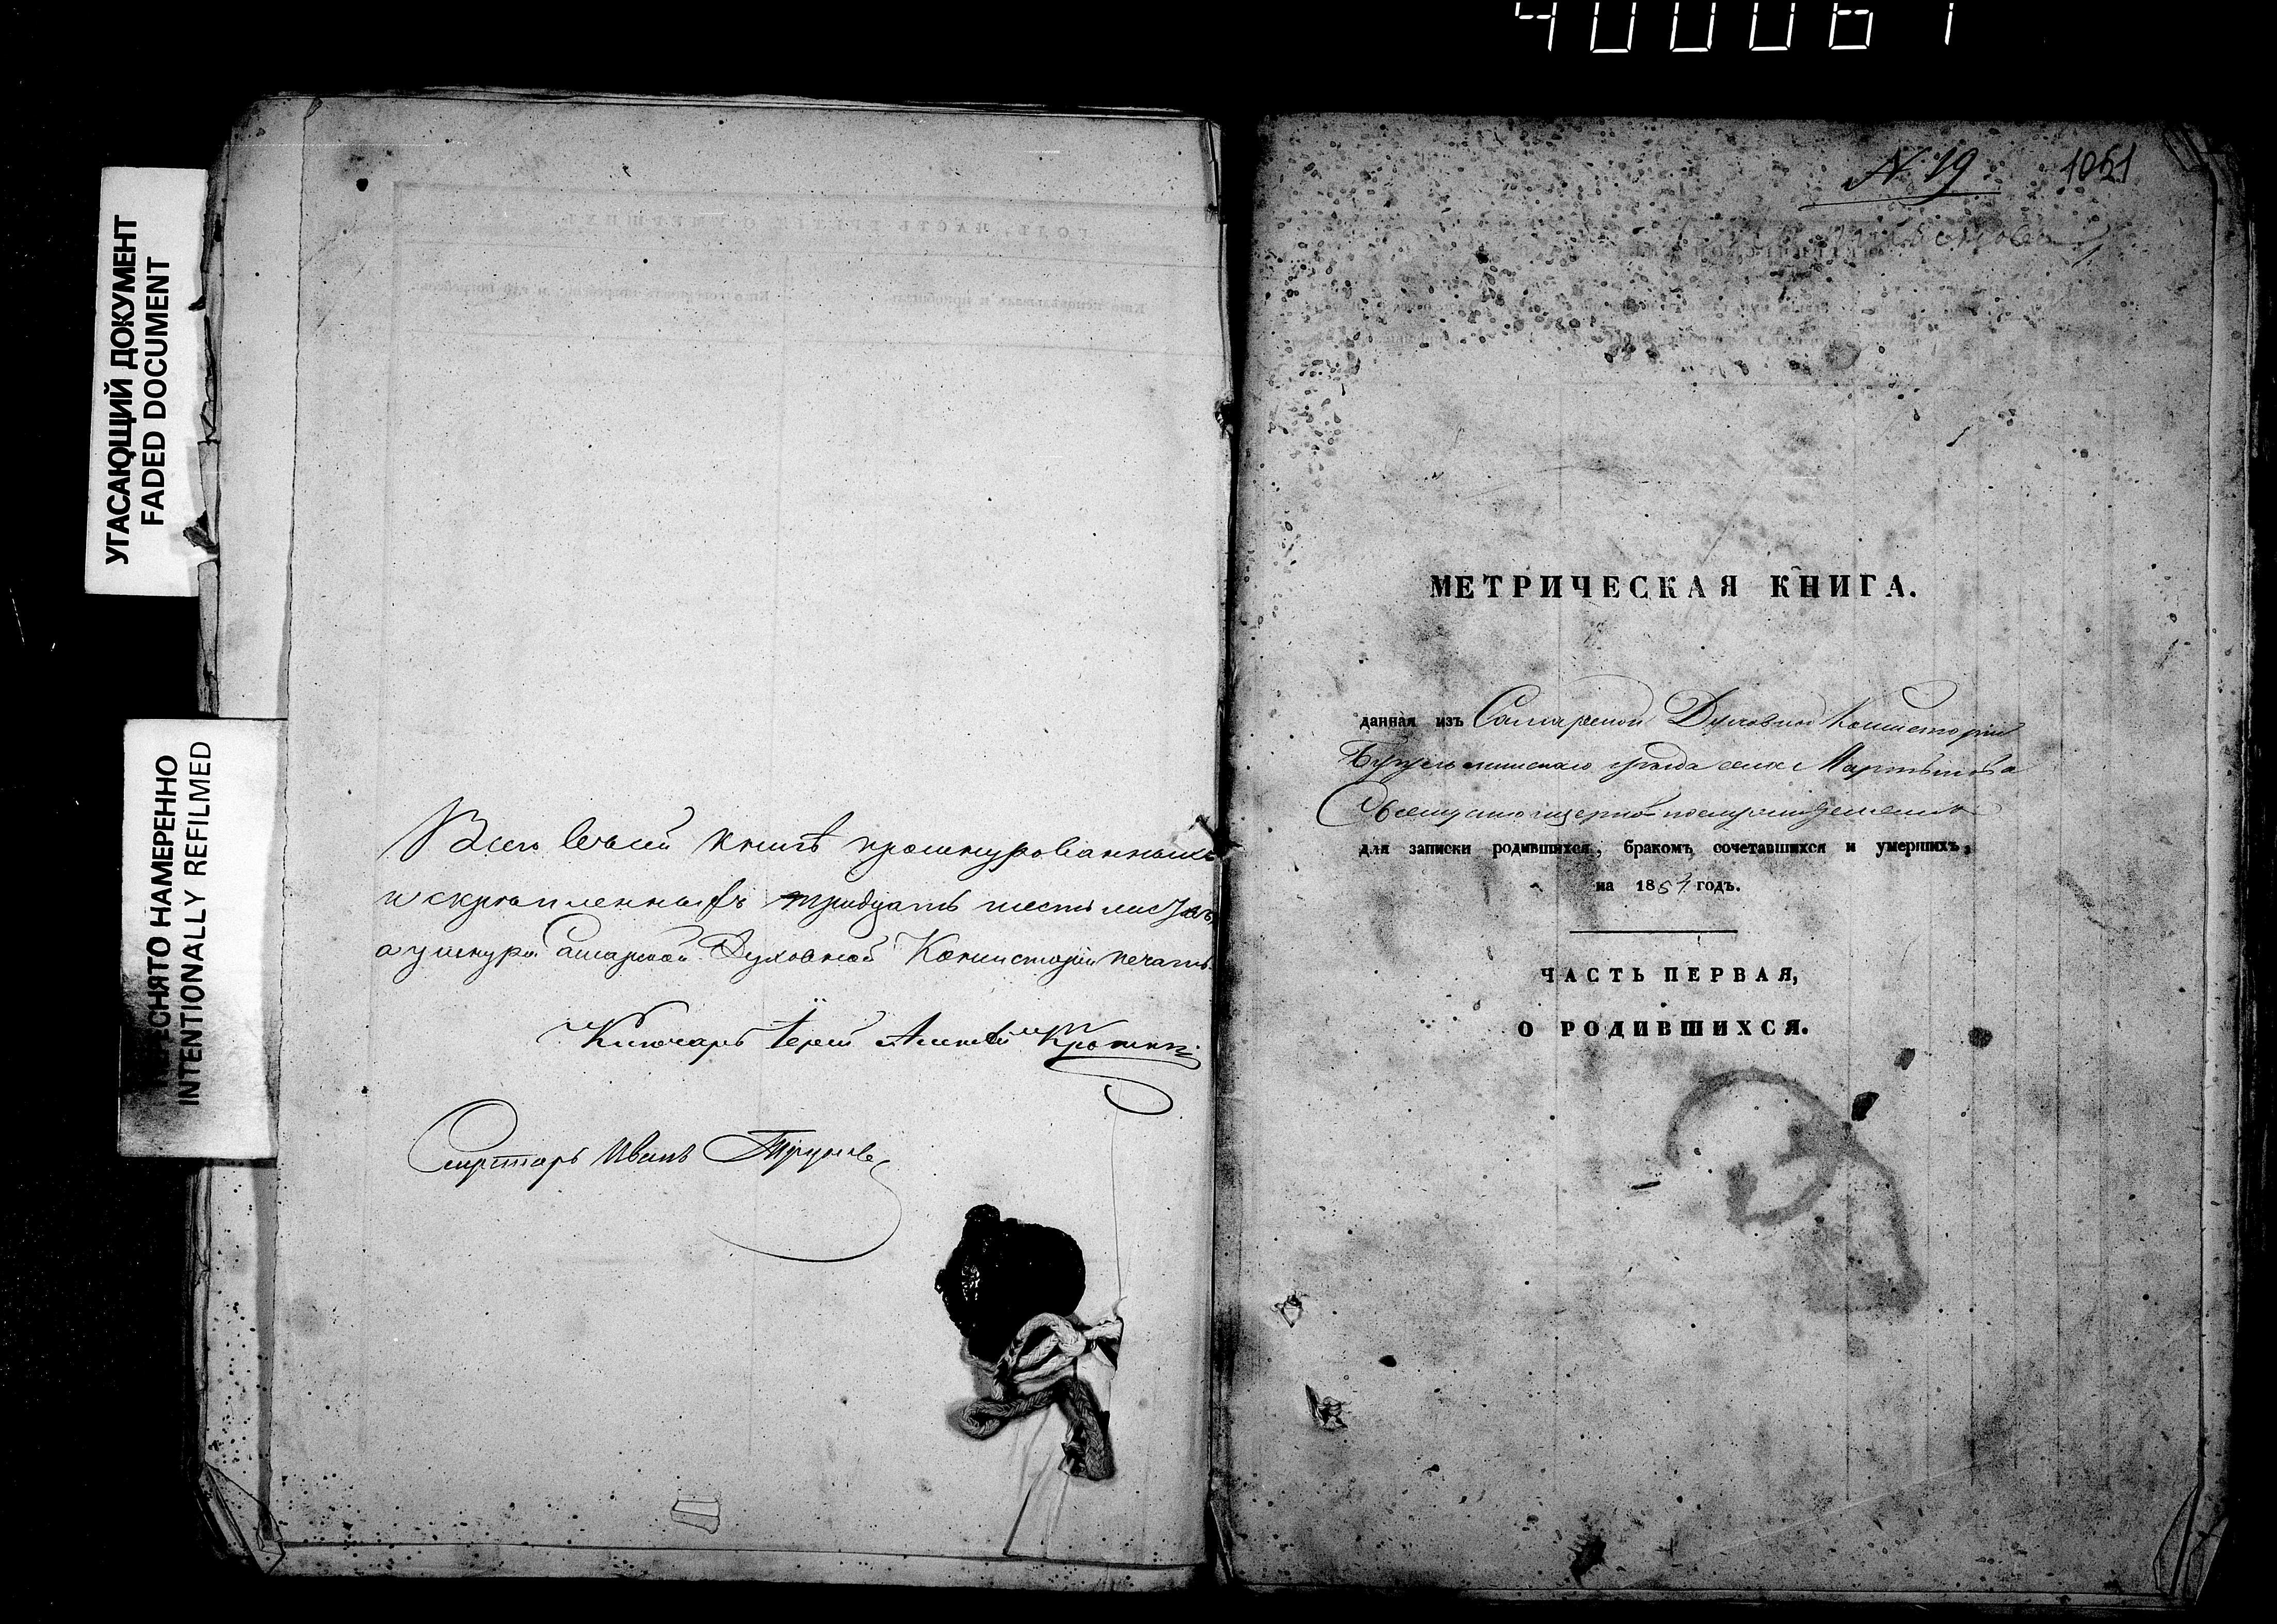 400061
УГАСАЮЩИЙ ДОКУМЕНТ
FADED DOCUMENT
ПЕРЕСНЯТО НАМЕРЕННО
INTENTIONALLY REFILMED
Всего въ сей книгѣ прошнурованныхъ
и скрѣпленныхъ тридцать шесть листовъ,
а у шнура Самарской Духовной Консисторіи печать.
Ключарь Іерей Алексѣй
Секретарь Иванъ
N. 19 1061
МЕТРИЧЕСКАЯ КНИГА.
данная изъ Самарской Духовной Консисторіи
Бугульминскаго уѣзда села Мартыпова
для записки родившихся, бракомъ сочетавшихся и умершихъ,
на 1864 годъ.
ЧАСТЬ ПЕРВАЯ,
О РОДИВШИХСЯ.